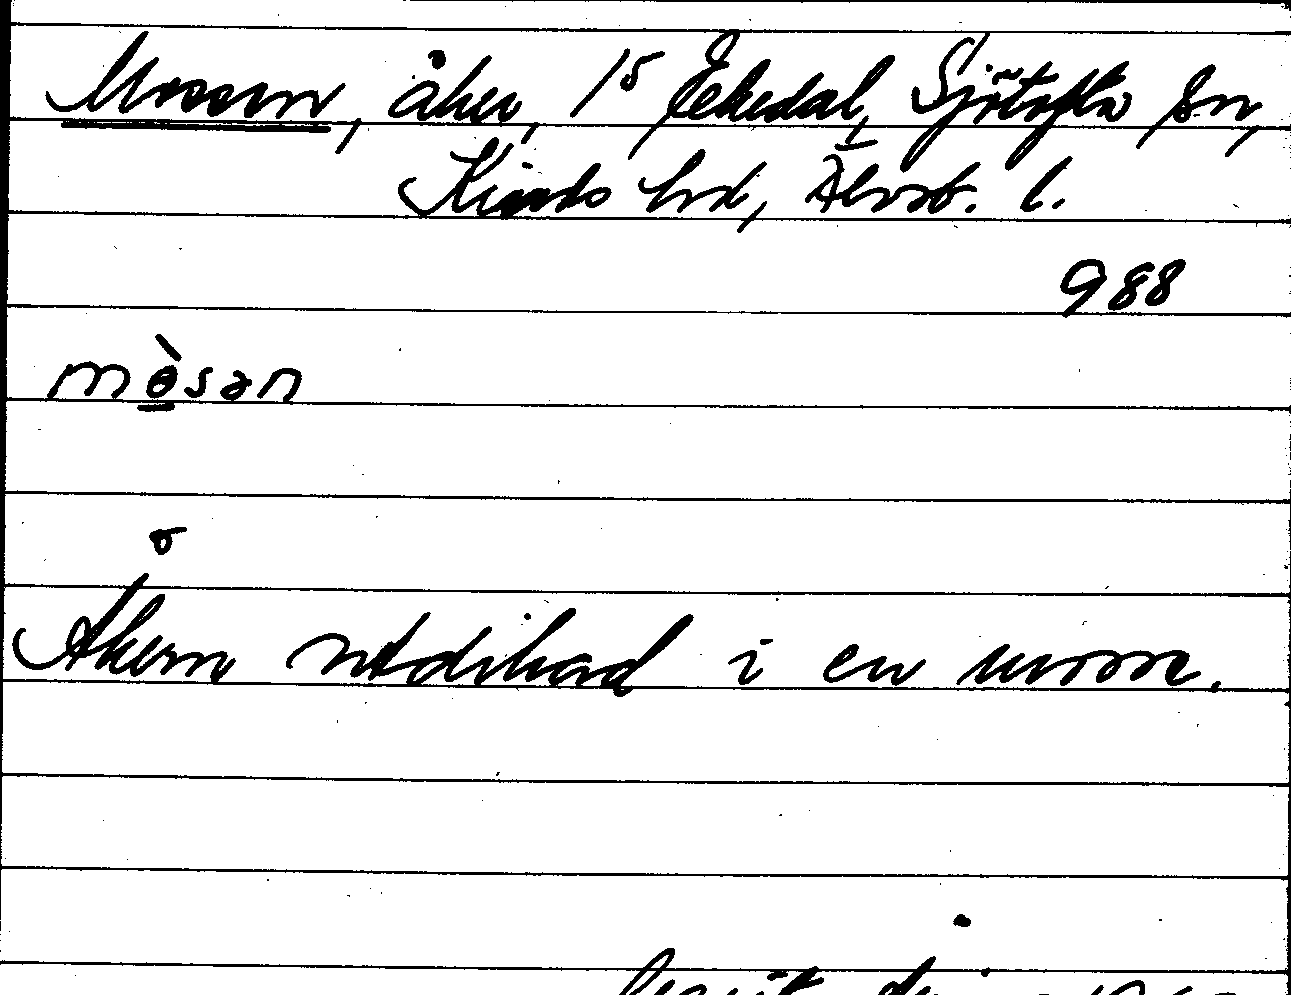 Mossen, åker, 15 Ekedal, Sjötofta sn,
Kinds hd, Älvsb. l.
988
mө̲̀sən
Åkern utdikad i en mosse.